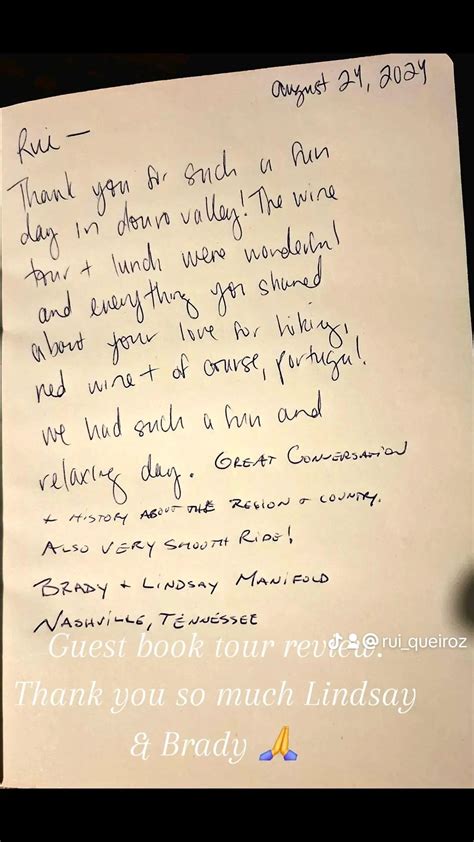 August 24, 2024
Rui —
Thank you for such a fun
day in douro valley! The wine
tour + lunch were wonderful
and everything you shared
about your love for hiking,
red wine + of course, portugal!
we had such a fun and
relaxing day. GREAT CONVERSATION
+ HISTORY ABOUT THE REGION & COUNTRY.
ALSO VERY SMOOTH RIDE!
BRADY + LINDSAY MANIFOLD
NASHVILLE, TENNESSEE
Guest book tour review.
@rui_queiroz
Thank you so much Lindsay
& Brady 🙏